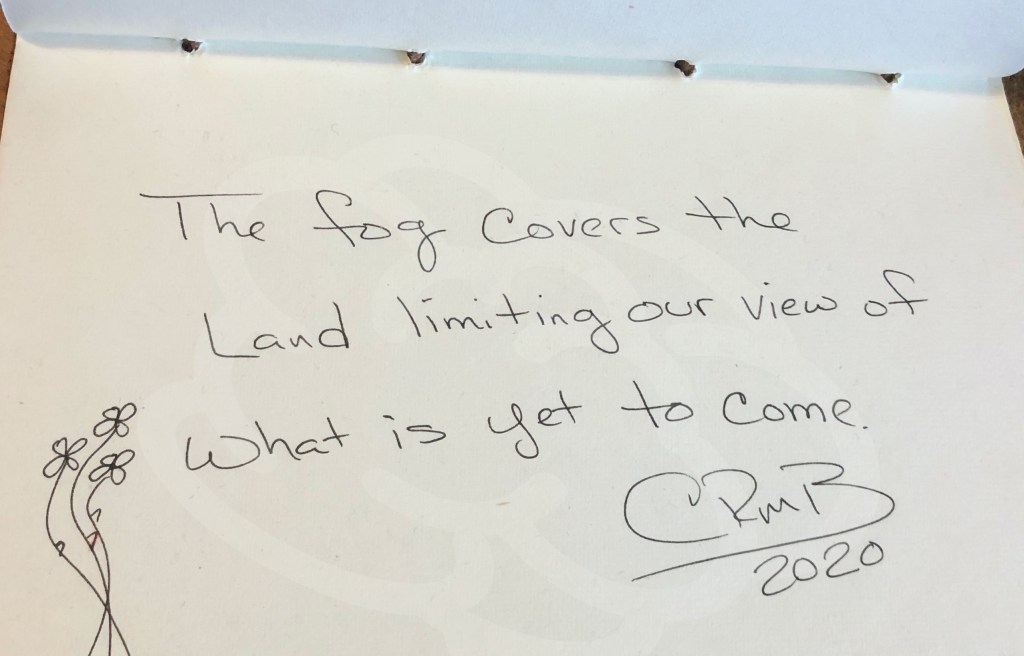 The fog Covers the
Land limiting our view of
What is yet to Come.
CRMB
2020